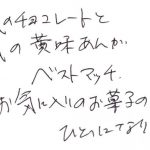 のチョコレートと
の黄味あんが、
ベストマッチ.
お気に入りのお菓子の
ひとつになり